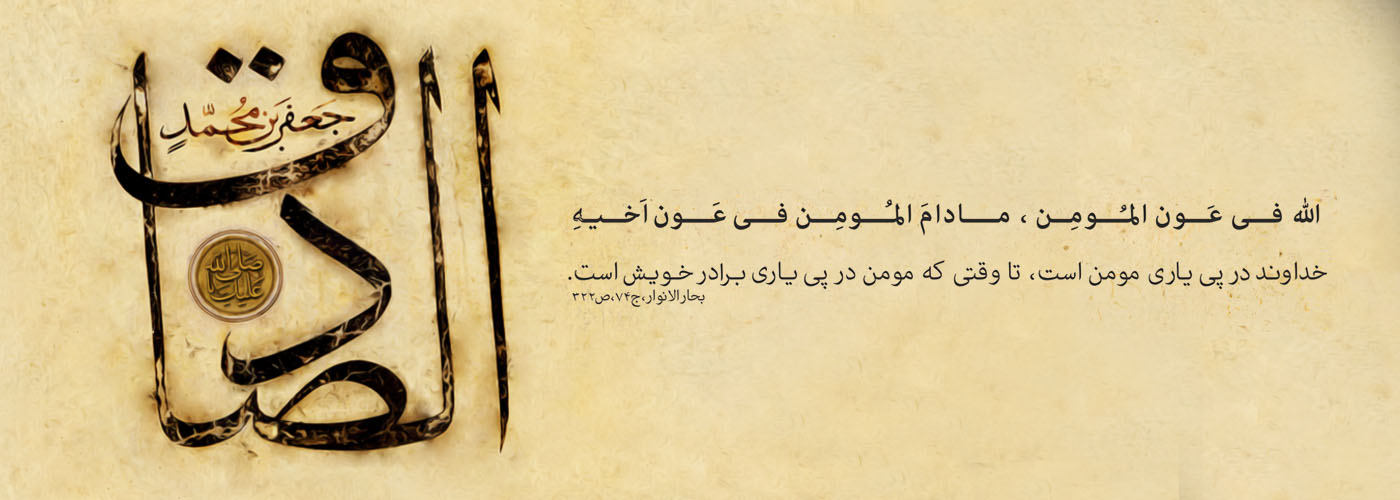 الصادق
جَعفَر بن مُحَمَّدٍ
صلی الله علیک
الله فی عَون المُومِن ، مادامَ المُومِن فی عَون اَخیهِ
خداوند در پی یاری مومن است، تا وقتی که مومن در پی یاری برادر خویش است.
بحارالانوار،ج۷۴،ص۳۲۲